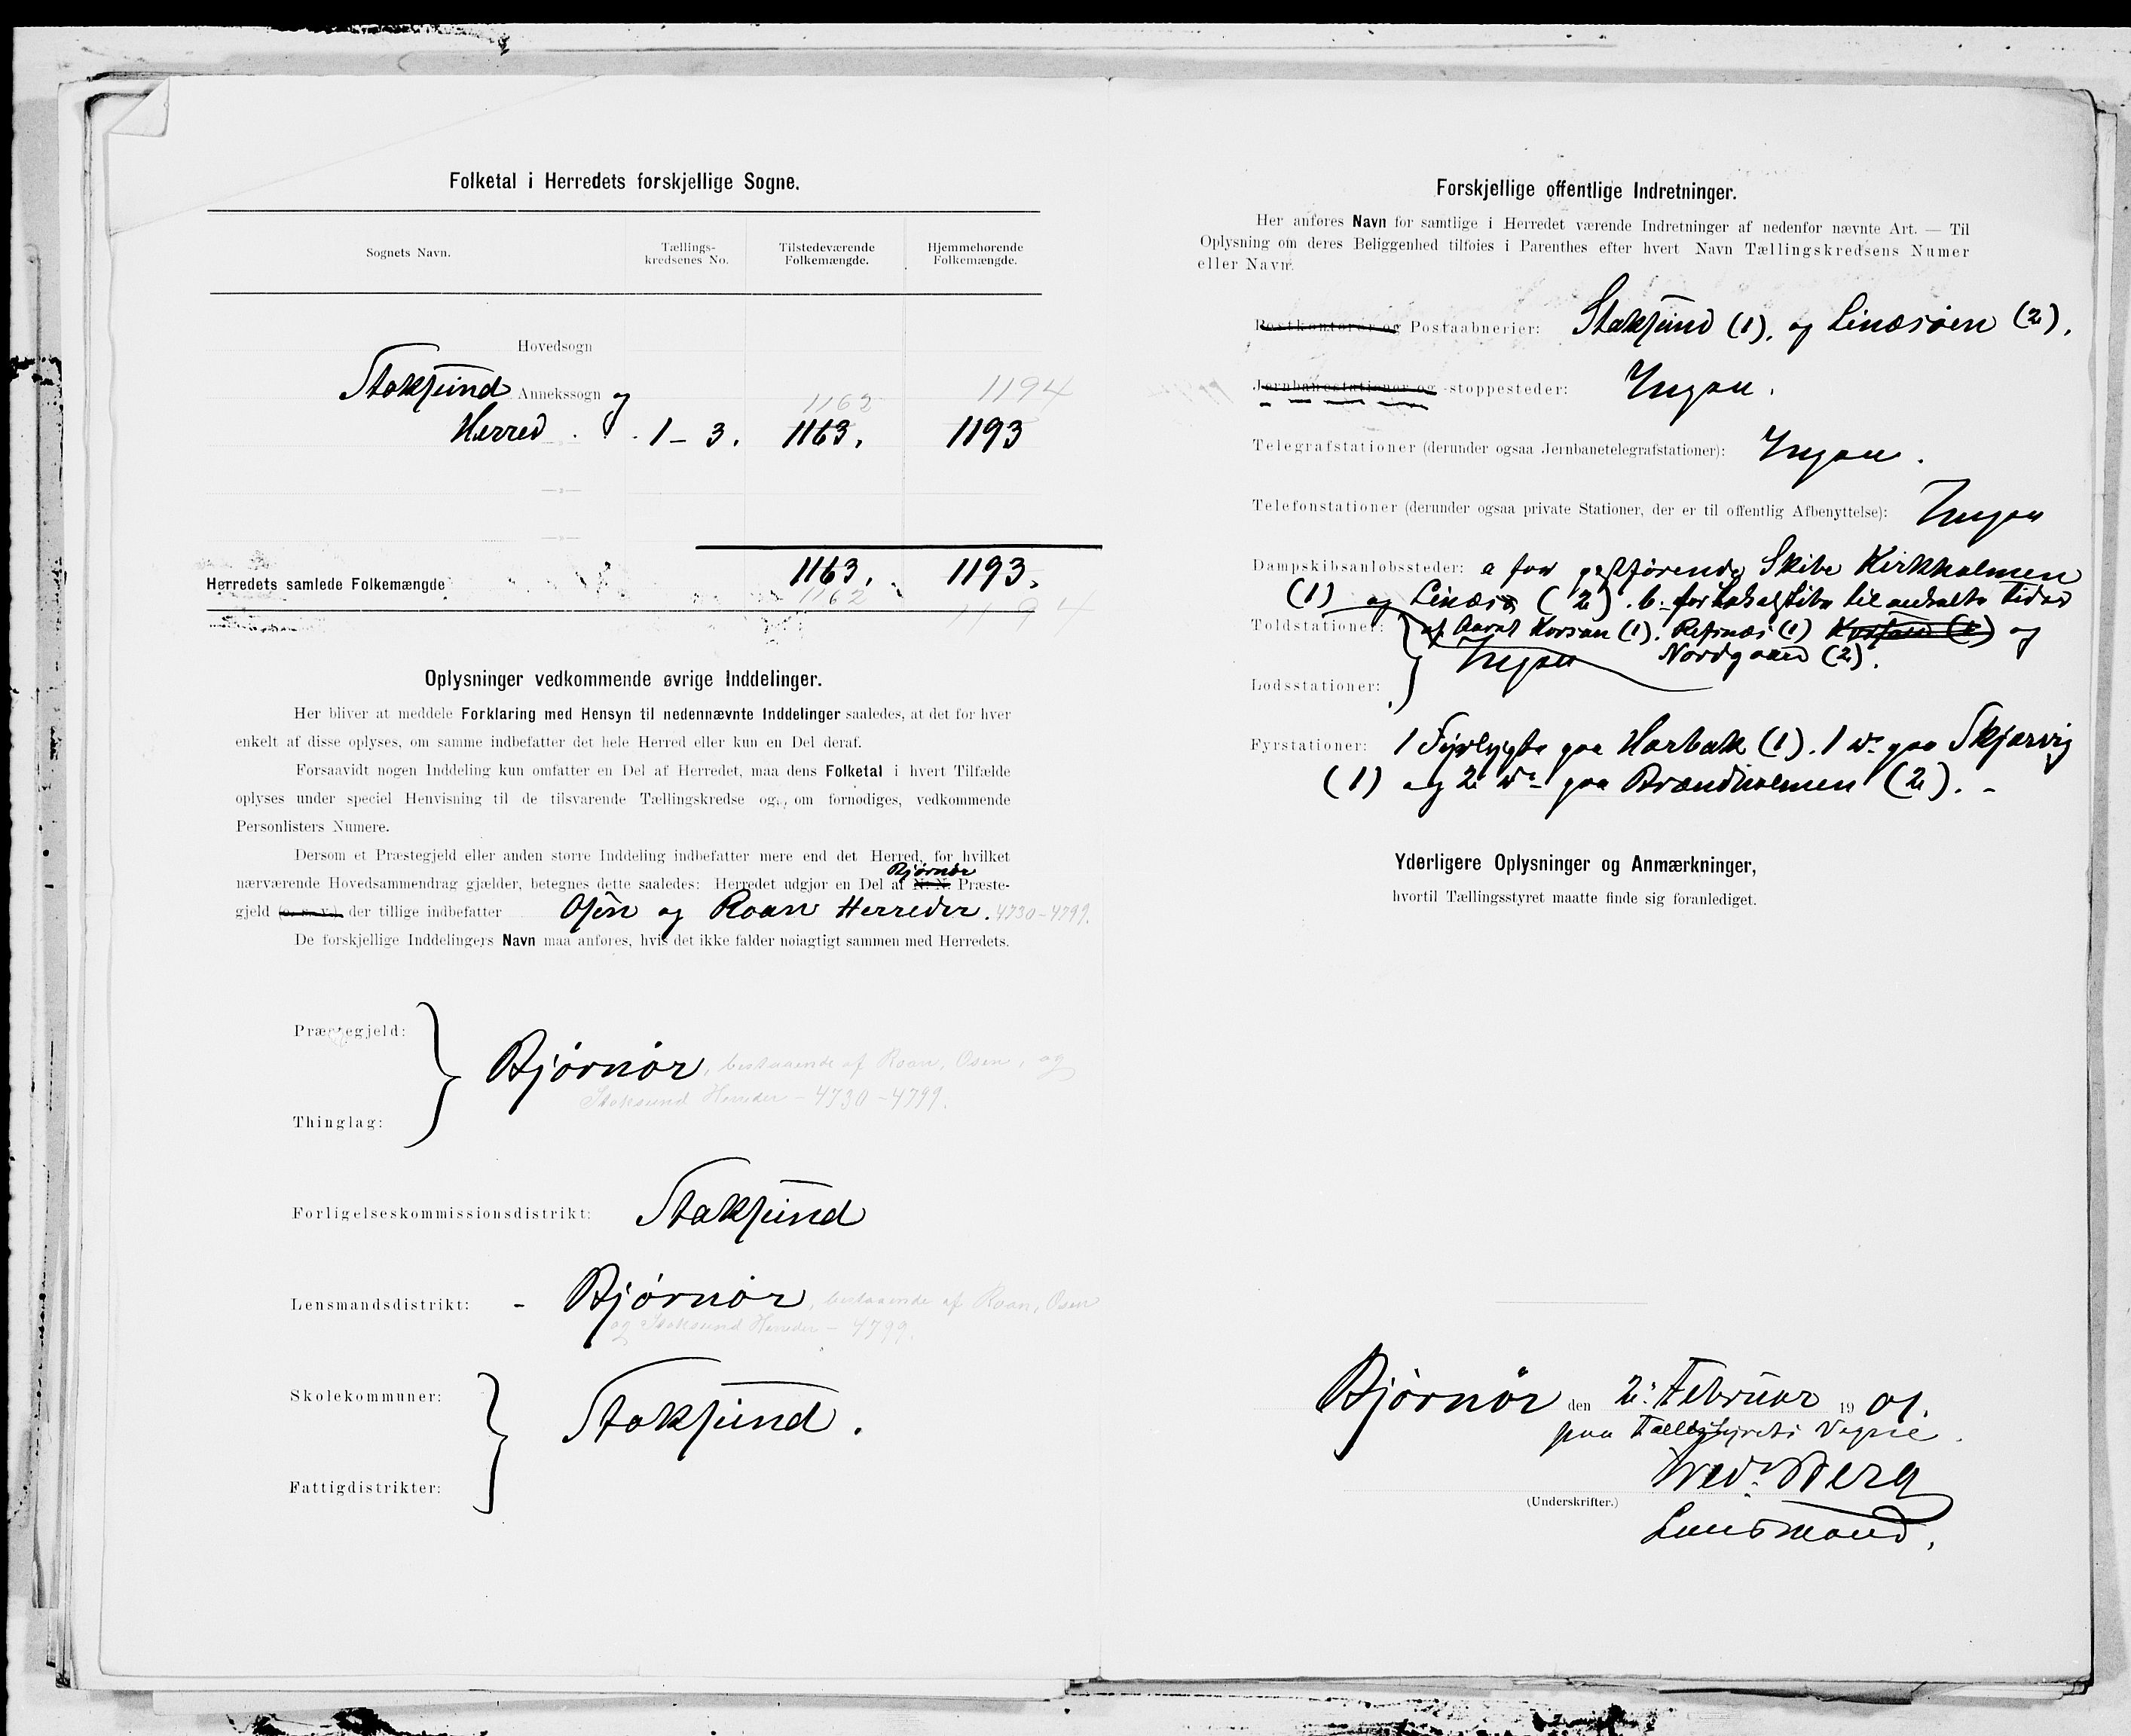 Folketal i Herredets forskjellige Sogne.
Sognets Navn.
Tællings-
kredsenes No.
Tilstedeværende
Folkemængde.
Hjemmehørende
Folkemængde.
Hovedsogn
Stoksund Annekssogn og 1162 1194
Herred 1-3. 1163. 1193
Herredets samlede Folkemængde 1163. 1193.
1162 1194
Oplysninger vedkommende øvrige Inddelinger.
Her bliver at meddele Forklaring med Hensyn til nedennævnte Inddelinger saaledes, at det for hver
enkelt af disse oplyses, om samme indbefatter det hele Herred eller kun en Del deraf.
Forsaavidt nogen Inddeling kun omfatter en Del af Herredet, maa dens Folketal i hvert Tilfælde
oplyses under speciel Henvisning til de tilsvarende Tællingskredse og, om fornødiges, vedkommende
Personlisters Numere.
Dersom et Præstegjeld eller anden større Inddeling indbefatter mere end det Herred, for hvilket
Bjørnør
nærværende Hovedsammendrag gjælder, betegnes dette saaledes: Herredet udgjør en Del af N. N. Præste-
gjeld (o. s. v.), der tillige indbefatter Osen og Roan Herreder. 4730-4799.
De forskjellige Inddelingers Navn maa anføres, hvis det ikke falder nøiagtigt sammen med Herredets.
Præstegjeld:
Bjørnør, bestaaende af Roan, Osen, og
Stoksund Herreder - 4730-4799.
Thinglag:
Forligelseskommissionsdistrikt: Stoksund
Lensmandsdistrikt: - Bjørnør, bestaaende af Roan, Osen
og Stoksund Herreder - 4799.
Skolekommuner:
Stoksund.
Fattigdistrikter:
Forskjellige offentlige Indretninger.
Her anføres Navn for samtlige i Herredet værende Indretninger af nedenfor nævnte Art. — Til
Oplysning om deres Beliggenhed tilføies i Parenthes efter hvert Navn Tællingskredsens Numer
eller Navn.
Postkontorer og Postaabnerier: Stoksund (1). og Linæsøen (2).
Jernbanestationer og -stoppesteder: Ingen.
Telegrafstationer (derunder ogsaa Jernbanetelegrafstationer): Ingen.
Telefonstationer (derunder ogsaa private Stationer, der er til offentlig Afbenyttelse): Ingen
Dampskibsanløbssteder: a for postførende Skibe Kirkholmen
(1) og Linæsø (2). b. for Lokalskibe til enkelte Tider
Toldstationer: af Aaret Korsøen (1). Refsnæs (1) og
Ingen Nordgaard (2).
Lodsstationer:
Fyrstationer: 1 Fyrlygte paa Harbak (1). 1 do paa Skjærvig
(1) og 2 do paa Brandholmen (2). -
Yderligere Oplysninger og Anmærkninger,
hvortil Tællingsstyret maatte finde sig foranlediget.
Bjørnør den 2. Februar 1901.
paa Tællingsstyrets Vegne.
Fred. Berg
(Underskrifter.)
Lensmand.